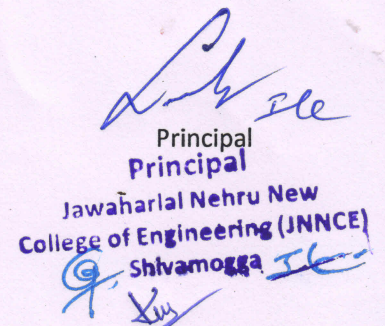 Principal
Principal
Jawaharlal Nehru New
College of Engineering (JNNCE)
Shivamogga